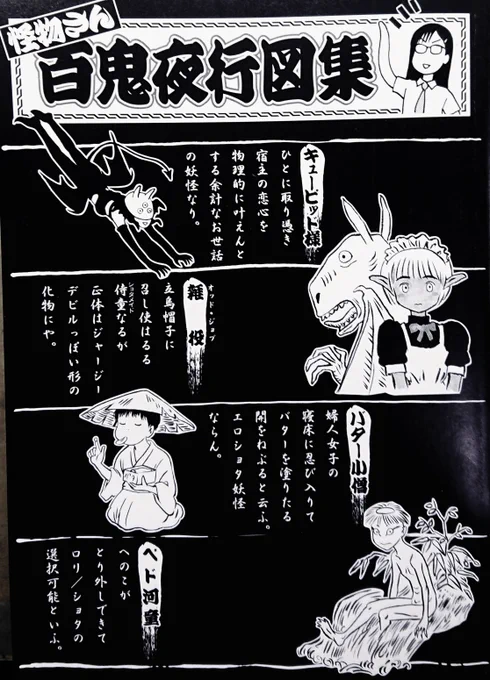 怪物さん
百鬼夜行図集
キューピッド様
ひとに取り憑き
宿主の恋心を
物理的に叶えんと
する余計なお世話
の妖怪なり。
オッド・ジョブ
雑役
立烏帽子に
召し使はるる
ショタメイド
侍童なるが
正体はジャージー
デビルっぽい形の
化物にや。
バター小僧
婦人女子の
寝床に忍び入りて
バターを塗りたる
開をねぶると云ふ。
エロショタ妖怪
ならん。
ペド河童
へのこが
とり外しできて
ロリ/ショタの
選択可能といふ。